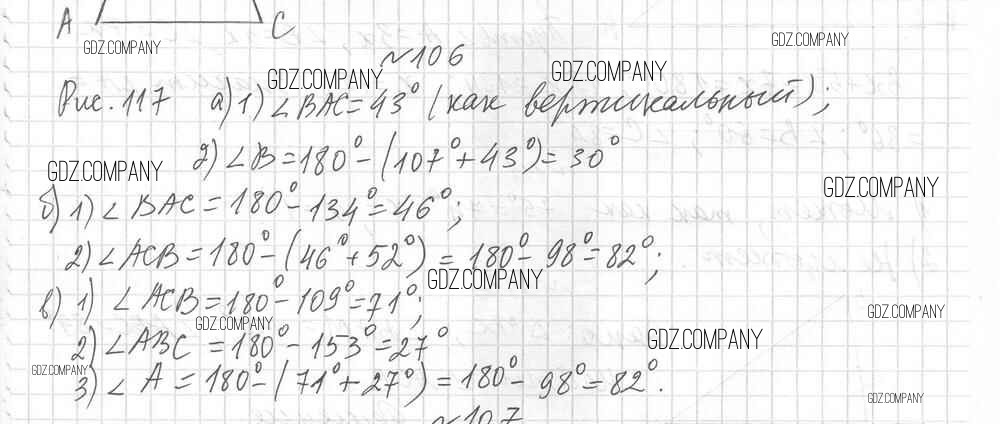 A C
GDZ.COMPANY
GDZ.COMPANY
№106
GDZ.COMPANY
GDZ.COMPANY
Рис. 117 а) 1) ∠BAC = 43° (как вертикальный);
2) ∠B = 180° - (107° + 43°) = 30°
GDZ.COMPANY
GDZ.COMPANY
б) 1) ∠BAC = 180° - 134° = 46°;
2) ∠ACB = 180° - (46° + 52°) = 180° - 98° = 82°;
GDZ.COMPANY
в) 1) ∠ACB = 180° - 109° = 71°;
GDZ.COMPANY
GDZ.COMPANY
2) ∠ABC = 180° - 153° = 27°
GDZ.COMPANY
GDZ.COMPANY
3) ∠A = 180° - (71° + 27°) = 180° - 98° = 82°.
GDZ.COMPANY
№107